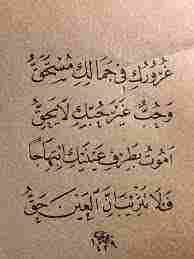 غُرُورُكِ فِي جَمَالِكِ مُسْتَحَقُّ
وَحُبٌّ غَيْرُ حُبِّكِ لَا يَحِقُّ
أَمُوتُ بِطَرْفِ عَيْنَيْكِ ابْتِهَاجًا
الْعَيْنَ حَقُّ